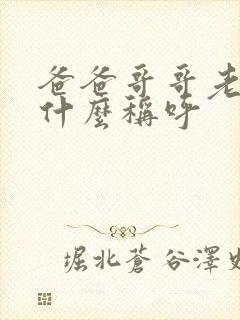 爸爸哥哥老
什麼稱呼
堀北蒼 谷澤